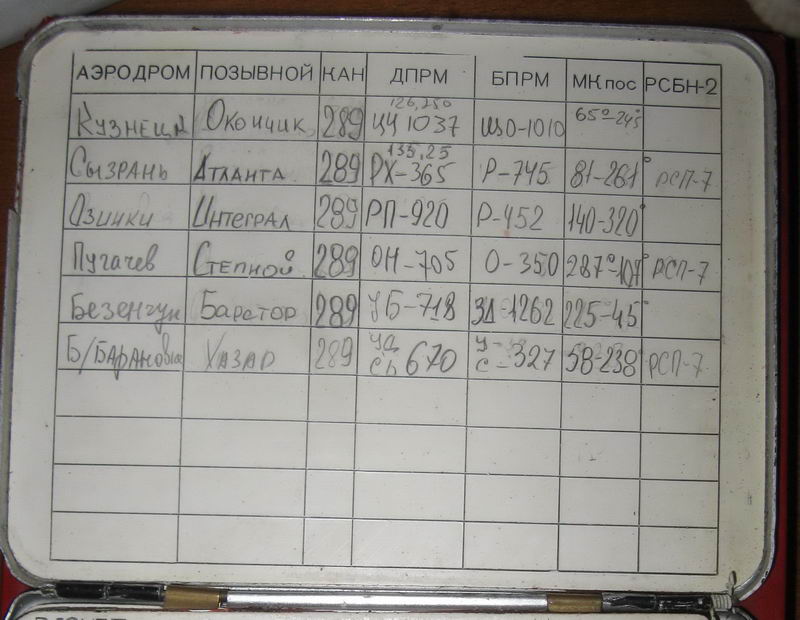 АЭРОДРОМ ПОЗЫВНОЙ КАН ДПРМ БПРМ МК пос РСБН-2
126,250
Кузнецк Окончик 289 ЦЧ 1037 1010 65°-245°
133,25
Сызрань Атланта 289 РХ-365 Р-745 81-261° РСП-7
Озинки Интеграл 289 РП-920 Р-452 140-320°
Пугачев Степной 289 ОН-705 О-350 287°-107° РСП-7
Безенчук 289 УБ-718 ЗД-1262 225-45°
Б/Барановка Хазар 289 670 327 58-238° РСП-7